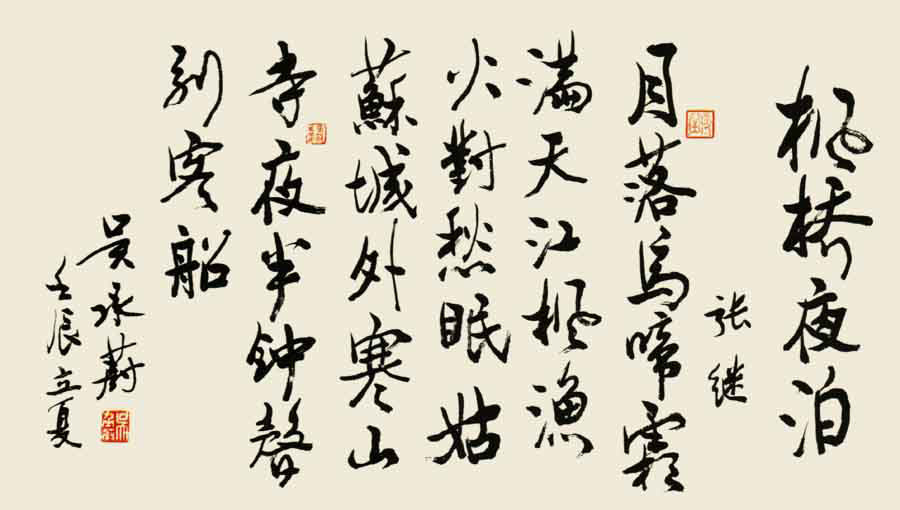 枫桥夜泊
张继
月落烏啼霜
满天江枫漁
火對愁眠姑
蘇城外寒山
寺夜半钟聲
到客船
吴承蔚
壬辰立夏